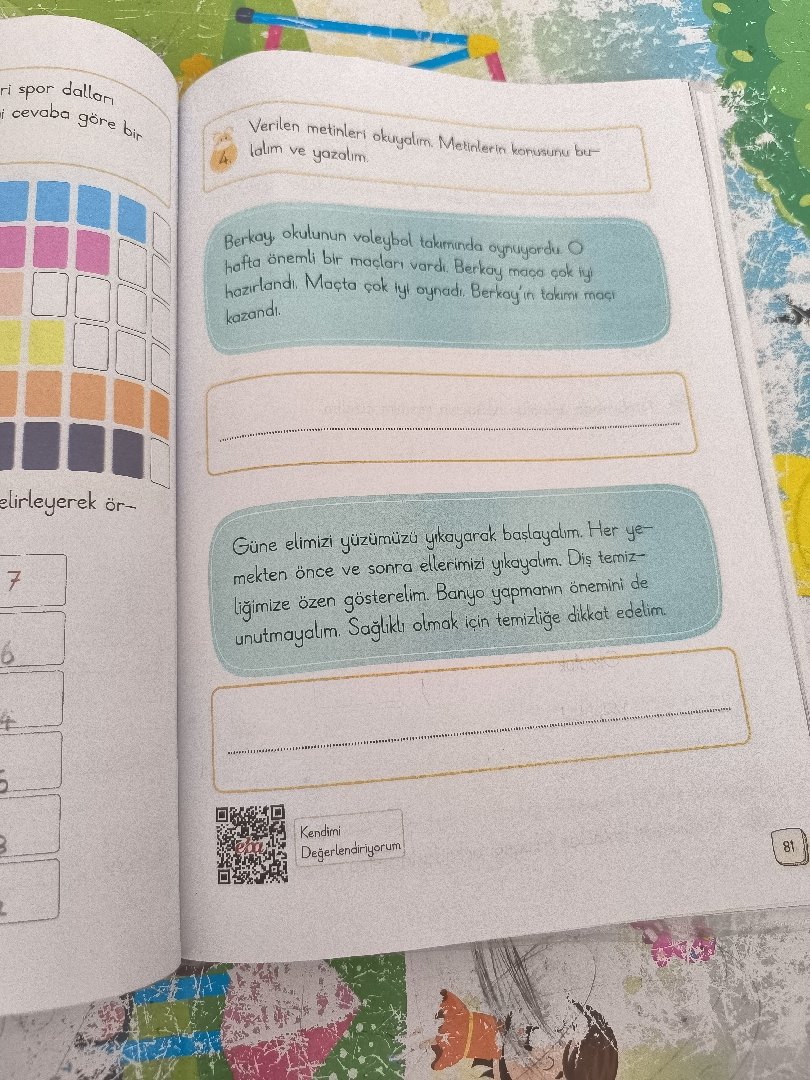 ri spor dalları
i cevaba göre bir
elirleyerek ör-
7
6
4
5
3
4.
Verilen metinleri okuyalım. Metinlerin konusunu bu-
lalım ve yazalım.
Berkay, okulunun voleybol takımında oynuyordu. O
hafta önemli bir maçları vardı. Berkay maça çok iyi
hazırlandı. Maçta çok iyi oynadı. Berkay'ın takımı maçı
kazandı.
Güne elimizi yüzümüzü yıkayarak başlayalım. Her ye-
mekten önce ve sonra ellerimizi yıkayalım. Diş temiz-
liğimize özen gösterelim. Banyo yapmanın önemini de
unutmayalım. Sağlıklı olmak için temizliğe dikkat edelim.
eba
Kendimi
Değerlendiriyorum
81